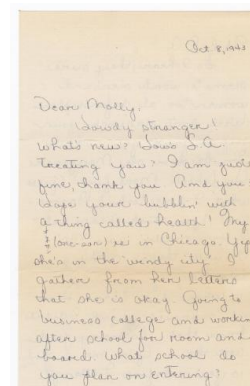 Oct 8, 1943
Dear Molly,
Howdy stranger!
What's new? How's L.A.
treating you? I am just
fine, thank you. And you
hope your bubblin' with
a thing called health! My
sis in Chicago. Yep
she's in the "wendy city". I
gather from her letters
that she is okay. Going to
business college and workin
after school for room and
board. What school do
you plan on entering?